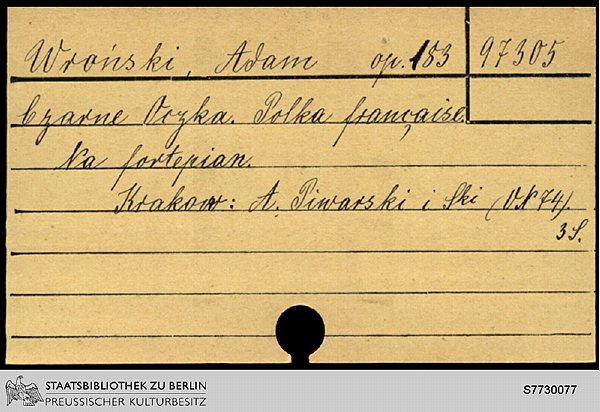 Wroński, Adam op. 183 97305
Czarne Oczka. Polka française.
Na fortepian.
Kraków: A. Piwarski i Ski (VN 74).
3 S.
STAATSBIBLIOTHEK ZU BERLIN
PREUSSISCHER KULTURBESITZ
S7730077